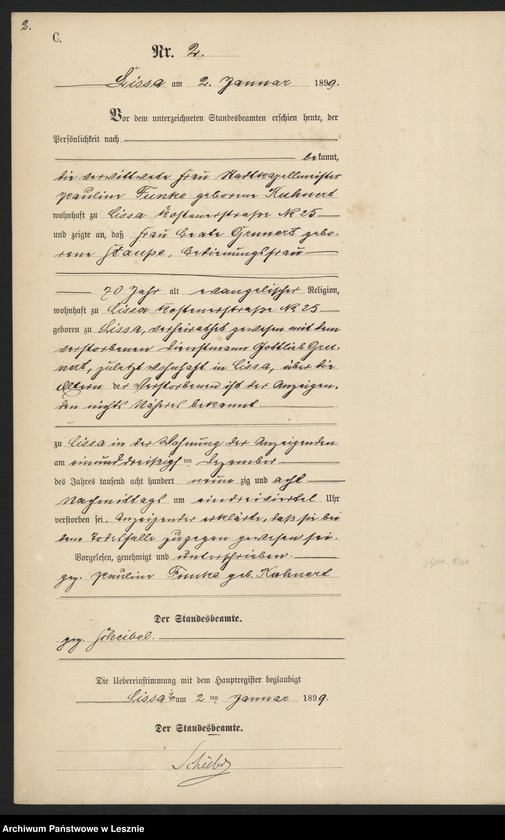 2.
C.
Nr. 2.
Lissa am 2. Januar 1899.
Vor dem unterzeichneten Standesbeamten erschien heute, der
Persönlichkeit nach
bekannt,
die verwittwete Frau Stadtkapellmeister
Pauline Funke geborene Kuhnert
wohnhaft zu Lissa Kostenerstraße № 25
und zeigte an, daß Frau Beate Grunert gebo-
rene Staupe, Bedienungsfrau
70 Jahr alt evangelischer Religion,
wohnhaft zu Lissa Kostenerstraße № 25
geboren zu Lissa, verheirathet gewesen mit dem
verstorbenen Dienstmann Gottlieb Gru-
nert, zuletzt wohnhaft in Lissa, über die
Eltern der Verstorbenen ist der Anzeigen-
den nichts Näheres bekannt
zu Lissa in der Wohnung der Anzeigenden
am einunddreißigsten Dezember
des Jahres tausend acht hundert neunzig und acht
Nachmittags um eindreiviertel Uhr
verstorben sei. Anzeigender erklärte, daß sie bei
dem Todesfalle zugegen gewesen sei.
Vorgelesen, genehmigt und unterschrieben
gez. Pauline Funke geb. Kuhnert
Der Standesbeamte.
gez. Scheibel.
Die Uebereinstimmung mit dem Hauptregister beglaubigt
Lissa am 2ten Januar 1899.
Der Standesbeamte.
Scheibel
Archiwum Państwowe w Lesznie